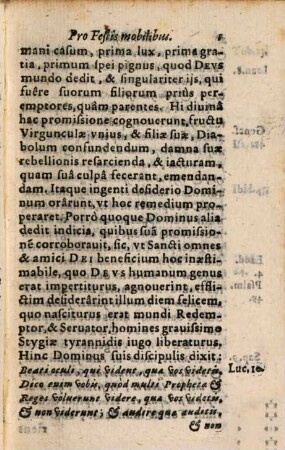 Pro Festis mobilibus.
mani casum, prima lux, prima gra-
tia, primum spei pignus, quod DEVS
mundo dedit, & singulariter ijs, qui
fuêre suorum filiorum priùs per-
emptores, quàm parentes. Hi diuina
hac promissione cognouerunt, fructu
Virgunculæ vnius, & filiæ suæ, Dia-
bolum confundendum, damna suæ
rebellionis resarcienda, & iacturam,
quam suâ culpâ fecerant, emendan-
dam. Itaque ingenti desiderio Domi-
num orârunt, vt hoc remedium pro-
peraret. Porrò quoque Dominus alia
dedit indicia, quibus suâ promissio-
nem corroborauit, sic, vt Sancti omnes
& amici DEI beneficium hoc inæsti-
mabile, quo DEVS humanum genus
erat impertiturus, agnouerint, effli-
ctim desiderârint illum diem felicem,
quo nasciturus erat mundi Redem-
ptor, & Seruator, homines grauissimo
Stygiæ tyrannidis iugo liberaturus,
Hinc Dominus suis discipulis dixit:
Beati oculi, qui vident, quæ vos videtis, Luc. 10.
Dico enim vobis, quod multi Prophetæ &
Reges voluerunt videre, quæ vos videtis,
& non viderunt; & audire quæ auditis,
& non